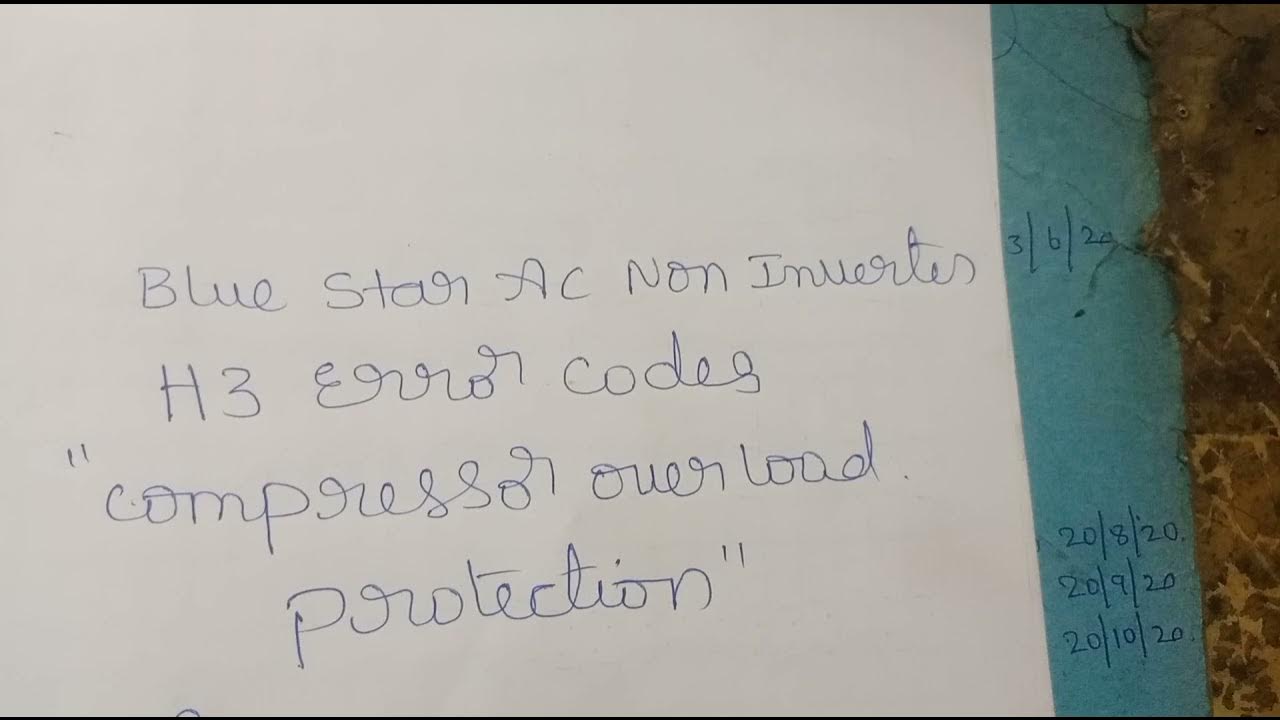 Blue Star AC Non Inverter
H3 Error codes
"compressor overload.
protection"
3/6/20
20/8/20.
20/9/20
20/10/20.